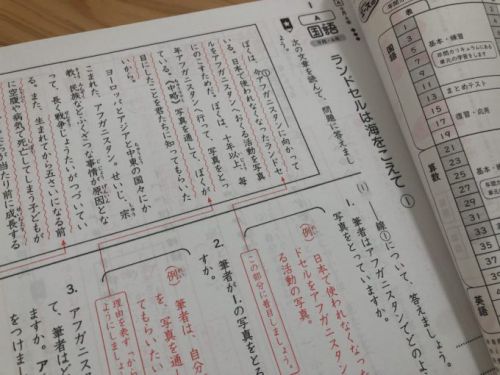 1
A
国語
ランドセルは海をこえて ①
次の文章を読んで、問題に答えまし
ょう。
ぼくは、今①アフガニスタンに向かって
いる。日本で使われなくなったランドセ
ルをアフガニスタンへおくる活動を写真
にのこすためだ。ぼくは、十年以上、毎
年アフガニスタンへ行って、写真をとっ
ている。【中略】写真を通して、ぼくが
目にしたことを君たちに知ってもらいた
いから。
ヨーロッパとアジアと中東の国々にか
こまれた、アフガニスタン。せいじ、宗
教、民族などふくざつな事情が原因とな
って、長く戦争じょうたいがつづいてい
る。また、生まれてから五さいになる前
に空腹や病気で死にしてしまう子どもが
(1)
線①について、答えましょう。
1. 筆者はアフガニスタンでどのよ
写真をとっていますか。
例
日本で使われなくなっ
ドセルをアフガニスタン
る活動の写真。
この部分に着目しましょう。
2. 筆者が1.の写真をとる
すか。
例
筆者は、自分
を、写真を通し
てもらいたい
理由を表す「から
ようにしましょ
3. アフガニス
て、筆者はど
ますか。ア
をつけまし
表
国語
基本・練習
年間カリキュラムにある
単元の学習をします。
1
3
5
7
9
11
13
15
まとめテスト
17
復習・応用
19
算数
21
23
25
27
29
31
33
35
37
英語